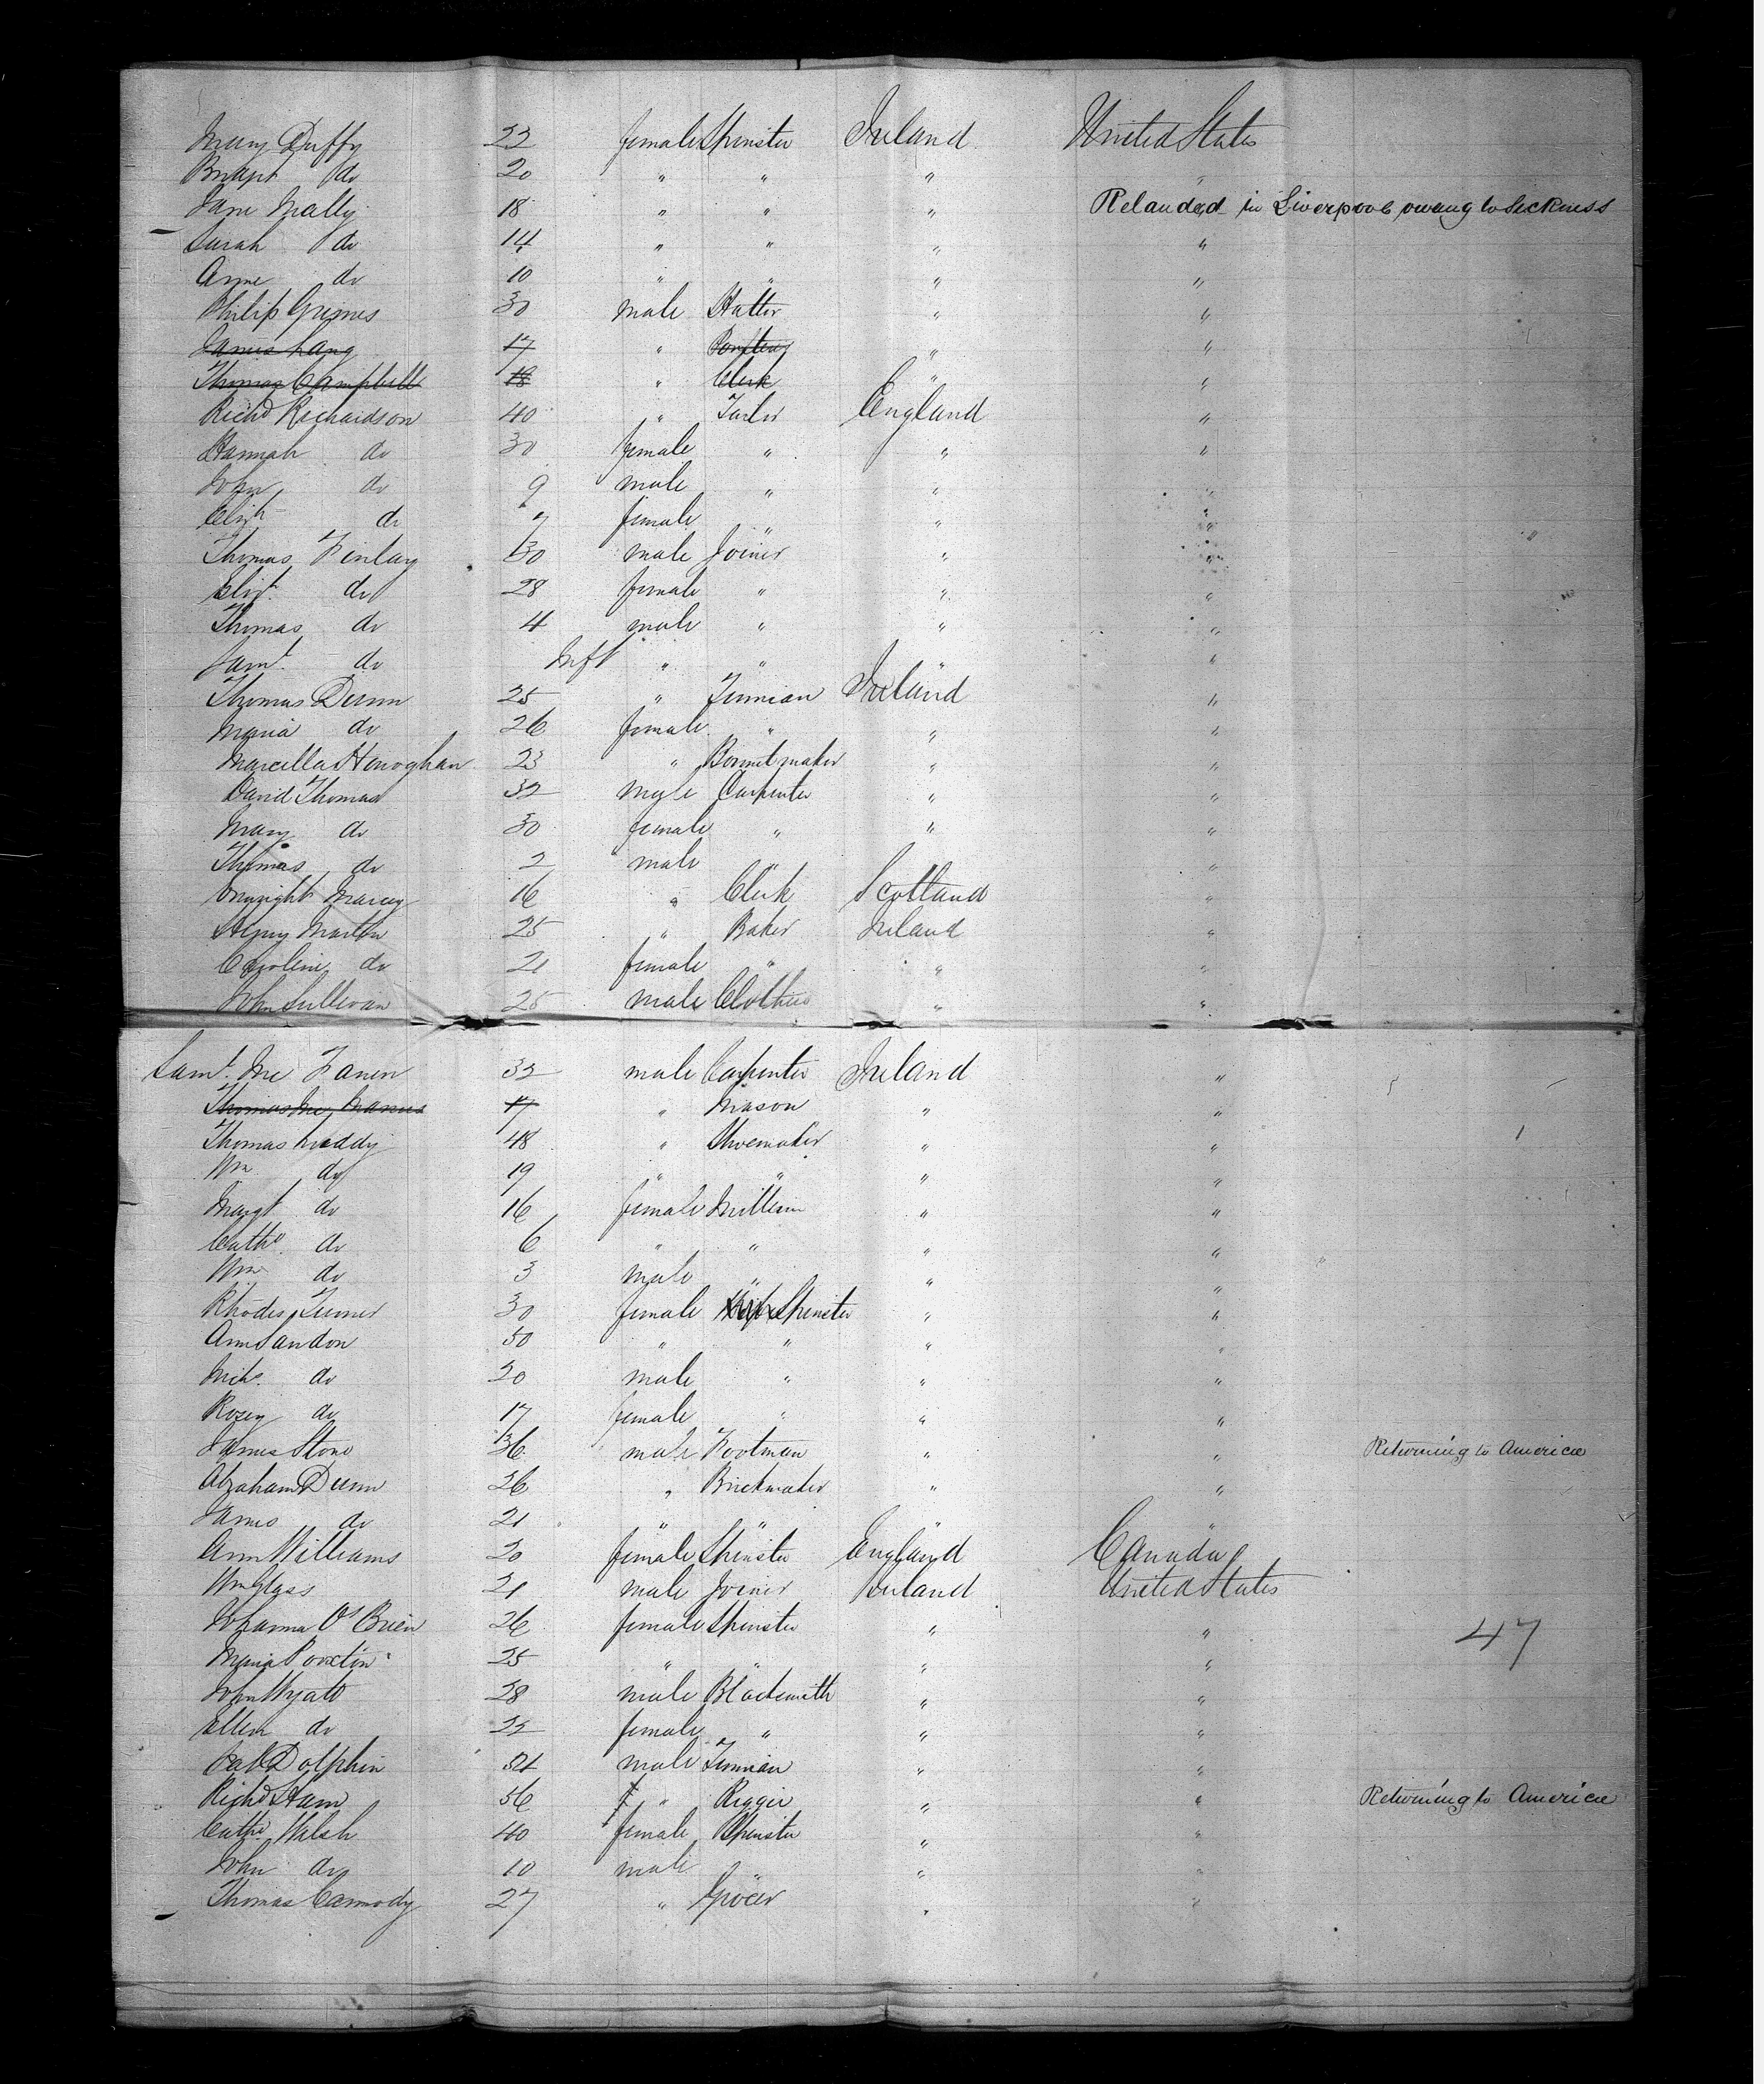 Mary Duffy 22 female Spinster Ireland United States
Bridget do 20 " " " "
Jane Mally 18 " " " Relanded in Liverpool owing to Sickness
Sarah do 14 " " " "
Anne do 10 " " " "
Philip Grimes 30 male Hatter " "
James Lang 17 " " "
Thomas Campbell 18 " Clerk " "
Richd Richardson 40 " Tailor England "
Hannah do 30 female " " "
John do 9 male " " "
Elizth do 7 female " " "
Thomas Finlay 30 male Joiner " "
Elizt. do 28 female " " "
Thomas do 4 male " " "
Saml. do Inft " " " "
Thomas Dunn 25 " Ireland "
Maria do 26 female " " "
Marcella Honoghan 23 " Bonnet maker " "
David Thomas 32 male Carpenter " "
Mary do 30 female " " "
Thomas do 2 male " " "
Marcey 16 " Clerk Scotland "
Henry Martin 25 " Baker Ireland "
Caroline do 21 female " " "
John Sullivan 25 male Clothier " "
Saml. Mc 32 male Carpenter Ireland "
Thomas Mc Manus 17 " Mason " "
Thomas Luddy 48 " Shoemaker " "
Wm do 19 " " " "
Margt do 16 female " "
Cathe. do 6 " " " "
Wm do 3 male " " "
Rhodes Turner 30 female Spinster " "
Ann Landon 50 " " " "
Michl. do 20 male " " "
Rosey do 17 female " " "
James Stone 36 male Footman " " Returning to America
Abraham Dunn 26 " Brickmaker " "
James do 21 " " " "
Ann Williams 20 female Spinster England Canada
Wm Glass 21 male Joiner Ireland United States
Johanna O'Brien 26 female Spinster " " 47
Maria 25 " " " "
John Wyatt 28 male Blacksmith " "
Ellen do 22 female " " "
Pat Dolphin male " "
Richd Ham 56 " Rigger " " Returning to America
Cathe. Walsh 40 female Spinster " "
John do 10 male " " "
Thomas Carmody 27 " Grocer " "